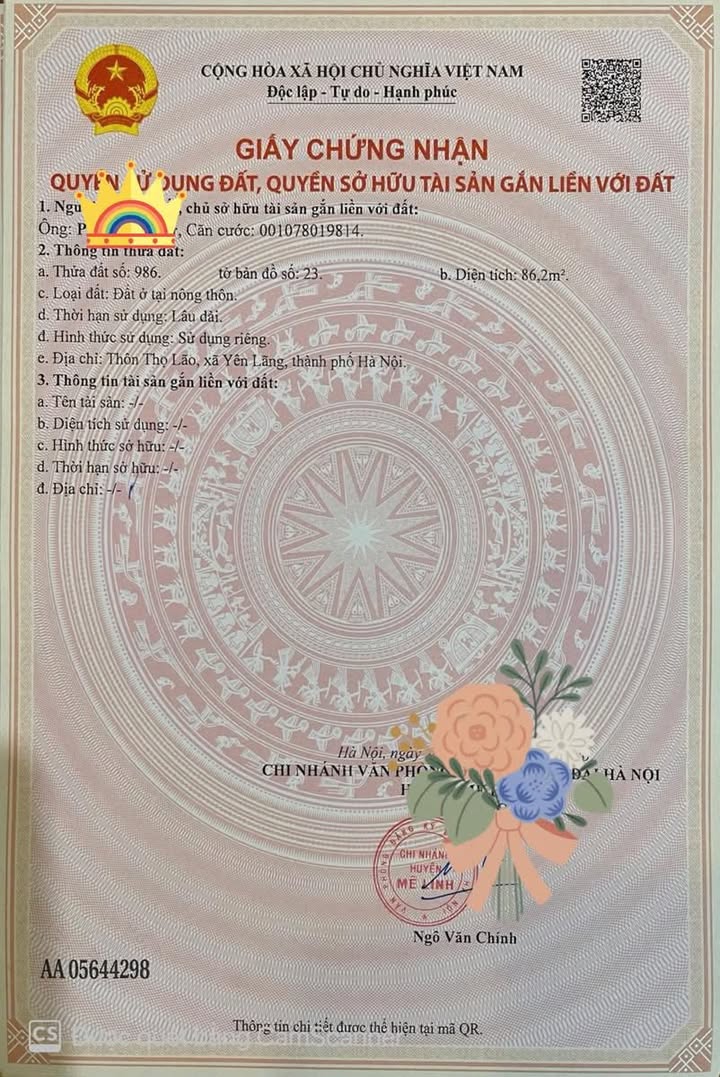 CỘNG HÒA XÃ HỘI CHỦ NGHĨA VIỆT NAM
Độc lập - Tự do - Hạnh phúc
GIẤY CHỨNG NHẬN
QUYỀN SỬ DỤNG ĐẤT, QUYỀN SỞ HỮU TÀI SẢN GẮN LIỀN VỚI ĐẤT
1. chủ sở hữu tài sản gắn liền với đất:
Ông: Căn cước: 001078019814.
2. Thông tin thửa đất:
a. Thửa đất số: 986. tờ bản đồ số: 23. b. Diện tích: 86,2m².
c. Loại đất: Đất ở tại nông thôn.
d. Thời hạn sử dụng: Lâu dài.
đ. Hình thức sử dụng: Sử dụng riêng.
e. Địa chỉ: Thôn Thọ Lão, xã Yên Lãng, thành phố Hà Nội.
3. Thông tin tài sản gắn liền với đất:
a. Tên tài sản: -/-
b. Diện tích sử dụng: -/-
c. Hình thức sở hữu: -/-
d. Thời hạn sở hữu: -/-
đ. Địa chỉ: -/-
Hà Nội, ngày
CHI NHÁNH VĂN ĐAI HÀ NỘI
CHI NHÁNH
HUYỆN
MÊ LINH
Ngô Văn Chính
AA 05644298
Thông tin chi tiết được thể hiện tại mã QR.
CS Được quét bằng CamScanner